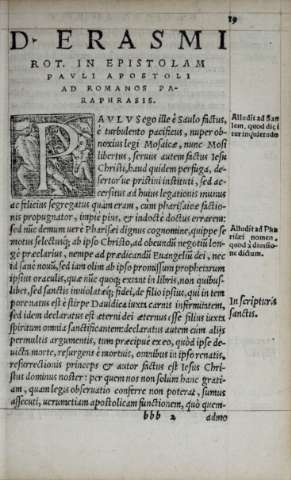 19
D. ERASMI
ROT. IN EPISTOLAM
PAVLI APOSTOLI
AD ROMANOS PA-
RAPHRASIS.
PAVLVS ego ille è Saulo factus,
è turbulento pacificus, nuper ob-
noxius legi Mosaicæ, nunc Mosi
libertus, seruus autem factus Iesu
Christi, haud quidem perfuga, de-
sertorue pristini instituti, sed ac-
cersitus ad huius legationis munus
ac felicius segregatus quàm eram, cum pharisaicæ factio-
nis propugnator, impiè pius, & indoctè doctus errarem:
sed nũc demum uere Pharisei dignus cognomine, quippe se-
motus selectusq; ab ipso Christo, ad obeundũ negotiũ lon-
ge præclarius, nempe ad prædicandũ Euangeliũ dei, nec
id sanè nouũ, sed iam olim ab ipso promissum prophetarum
ipsius oraculis, quæ nũc quoq; extant in libris, non quibus-
libet, sed sanctis inuiolatisq; fidei, de filio ipsius, qui in tem
pore natus est è stirpe Dauidica iuxta carnis infirmitatem,
sed idem declaratus est æterni dei æternus esse filius iuxta
spiritum omnia sanctificantem: declaratus autem cùm alijs
permultis argumentis, tum præcipuè ex eo, quòd ipse de-
uicta morte, resurgens è mortuis, omnibus in ipso renatis,
resurrectionis princeps & autor factus est Iesus Chri-
stus dominus noster: per quem nos non solùm hanc grati-
am, quam legis obseruatio conferre non poterat, sumus
assecuti, uerumetiam apostolicam functionem, quò quem-
bbb 2 admo
Alludit ad Sau
lem, quod
Alludit ad Pha
risei nomen,
quod à
ne dictum.
In scripturis
sanctis.